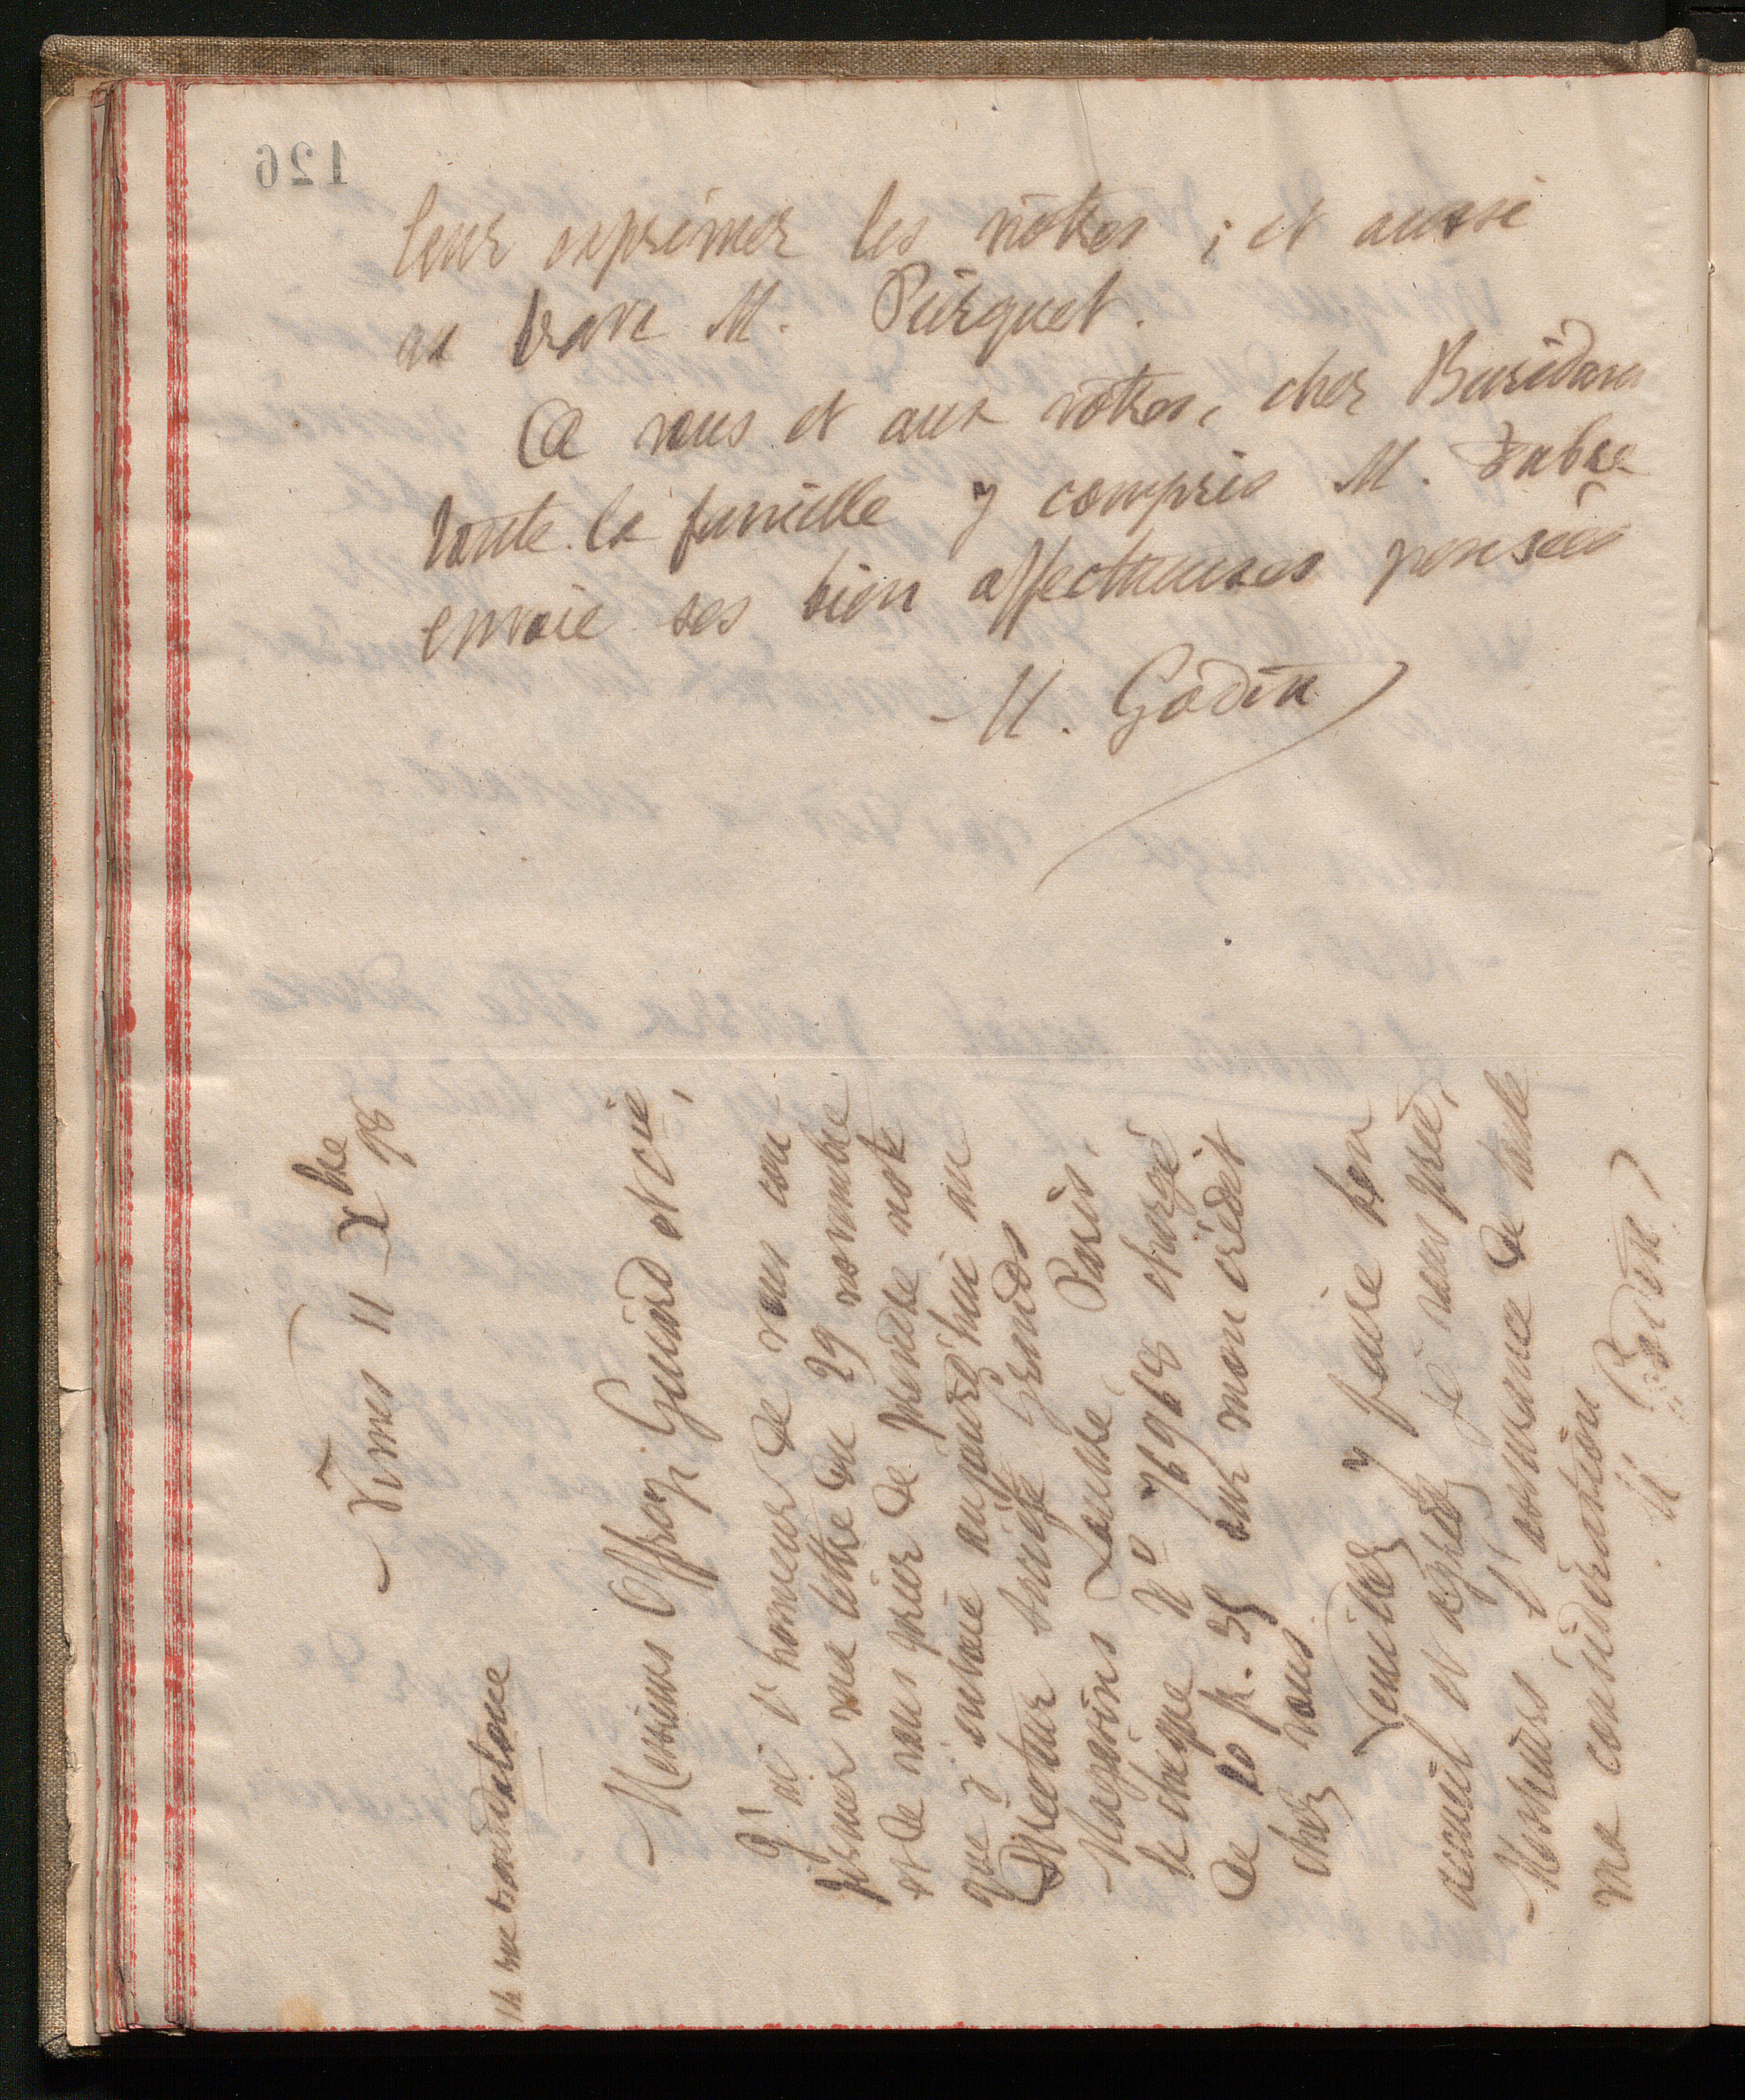 126
leur exprimer les nôtres ; et aussi
au brave M. Piirquet.
A vous et aux vôtres, cher Buridan
toute la famille y compris M. Fabre
envoie ses bien affectueuses pensées
M. Godin
Nimes 11 Xbre 98
14 rue Bourdaloue
Messieurs Offroy, Guiard et Cie,
J'ai l'honneur de vous con
firmer ma lettre du 29 novembre
et de vous prier de prendre note
que j'envoie aujourd'hui au
Directeur société Grands
Magasins Louvre, Paris,
le chèque No 76968 chargé
de 20 f. 35 sur mon crédit
chez vous.
Veuillez y faire bon
accueil et agréez, je vous prie,
Messieurs, l'assurance de toute
ma considération
M. Godin